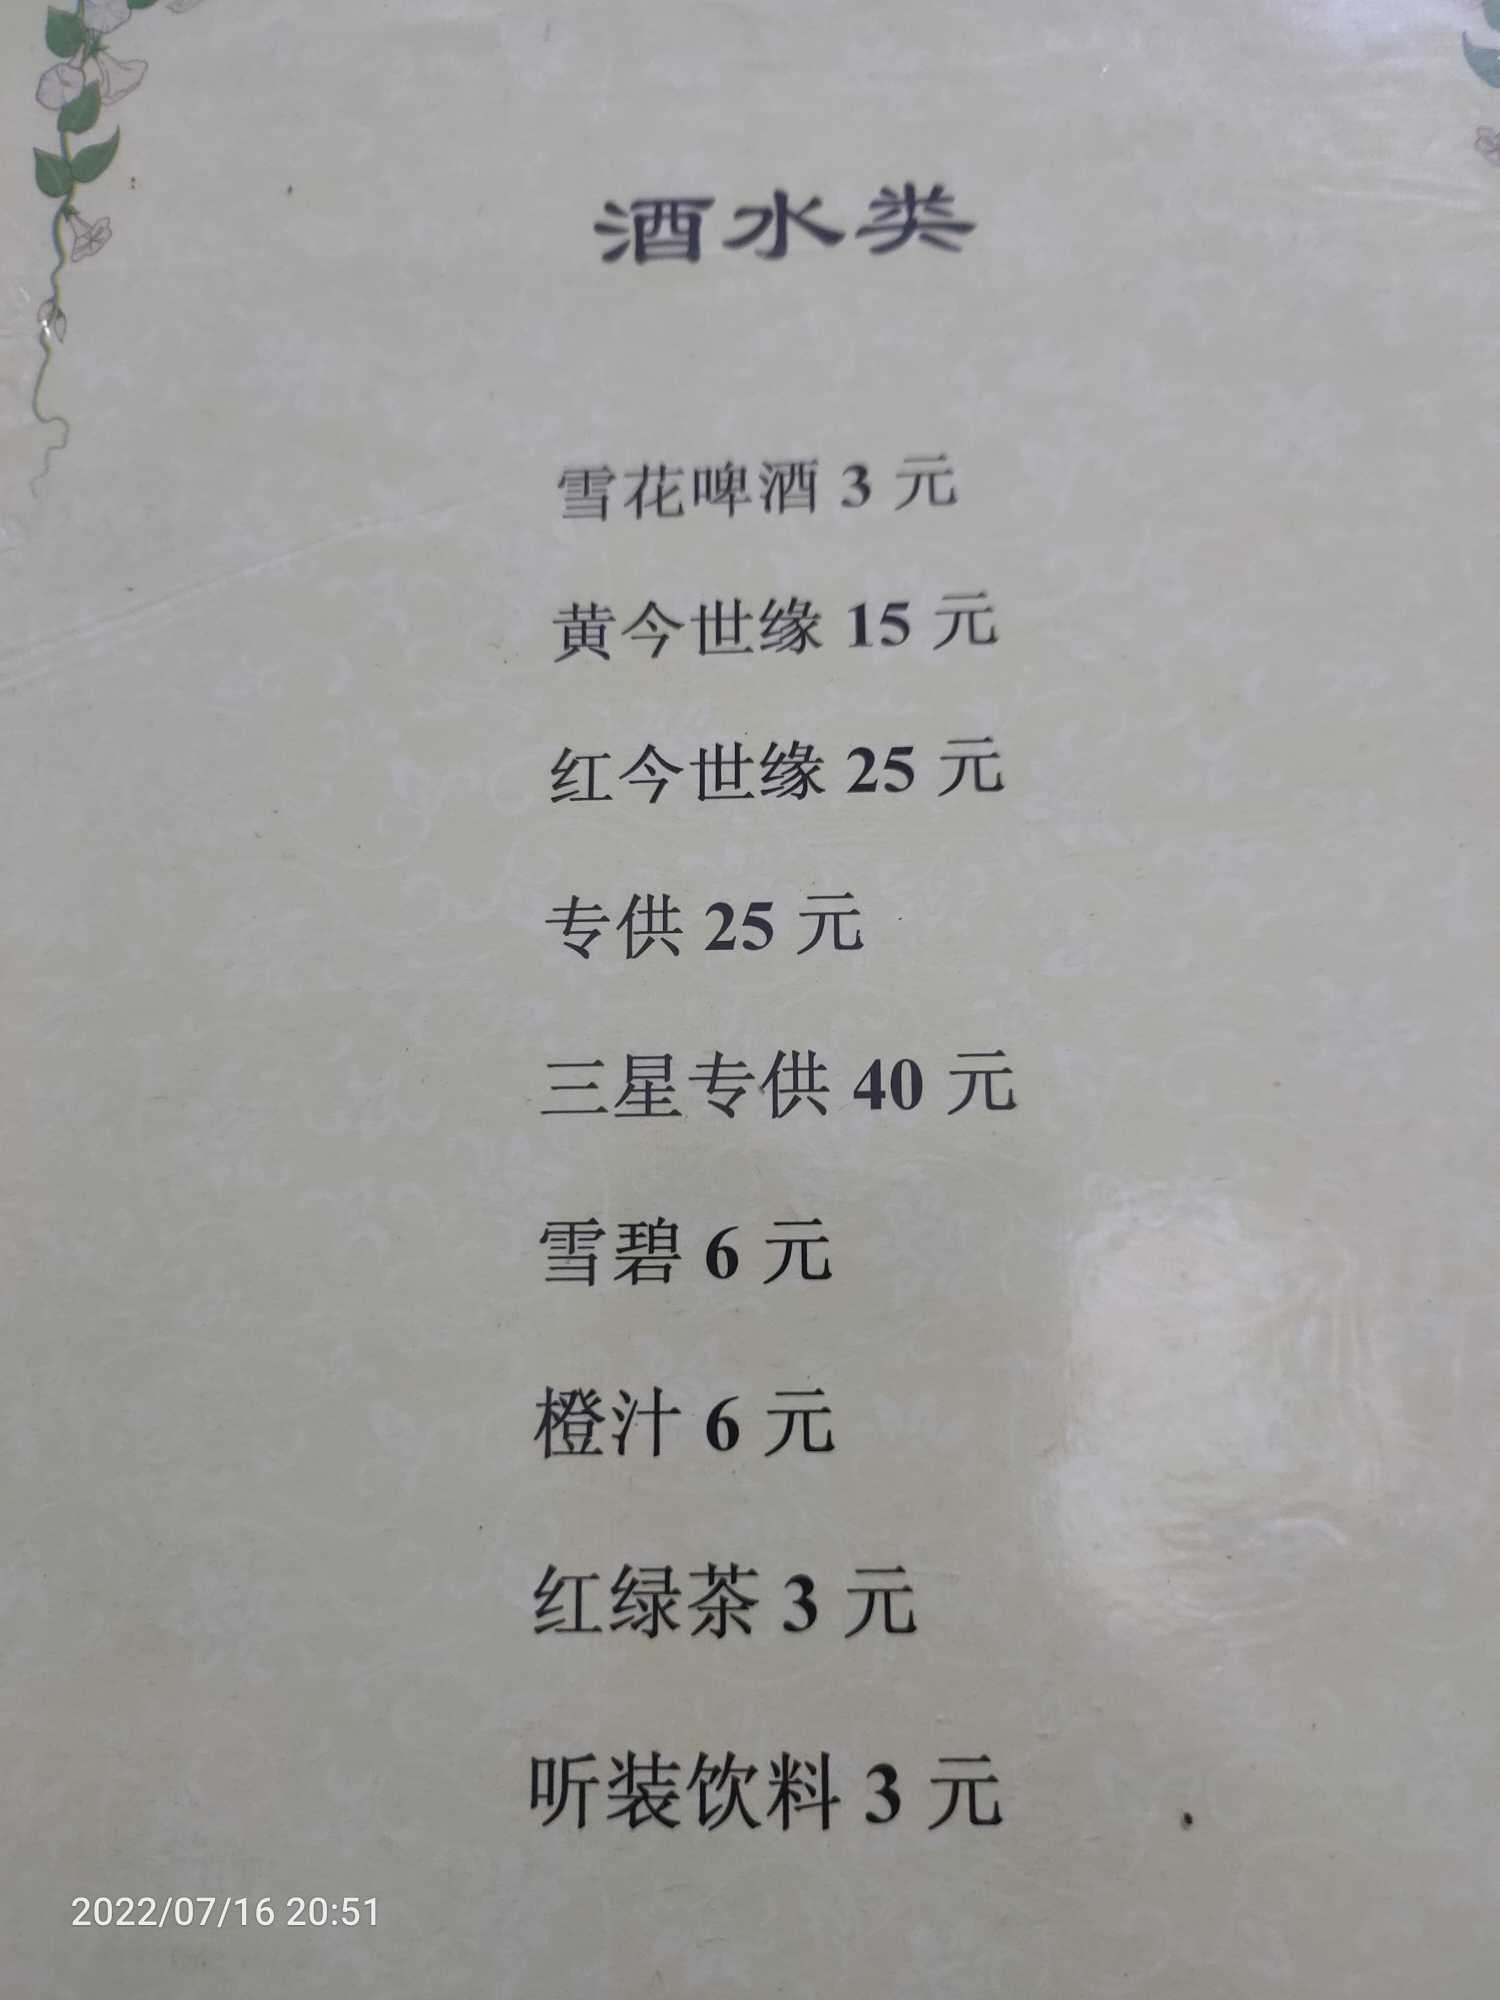 酒水类
雪花啤酒 3 元
黄今世缘 15 元
红今世缘 25 元
专供 25 元
三星专供 40 元
雪碧 6 元
橙汁 6 元
红绿茶 3 元
听装饮料 3 元
2022/07/16 20:51